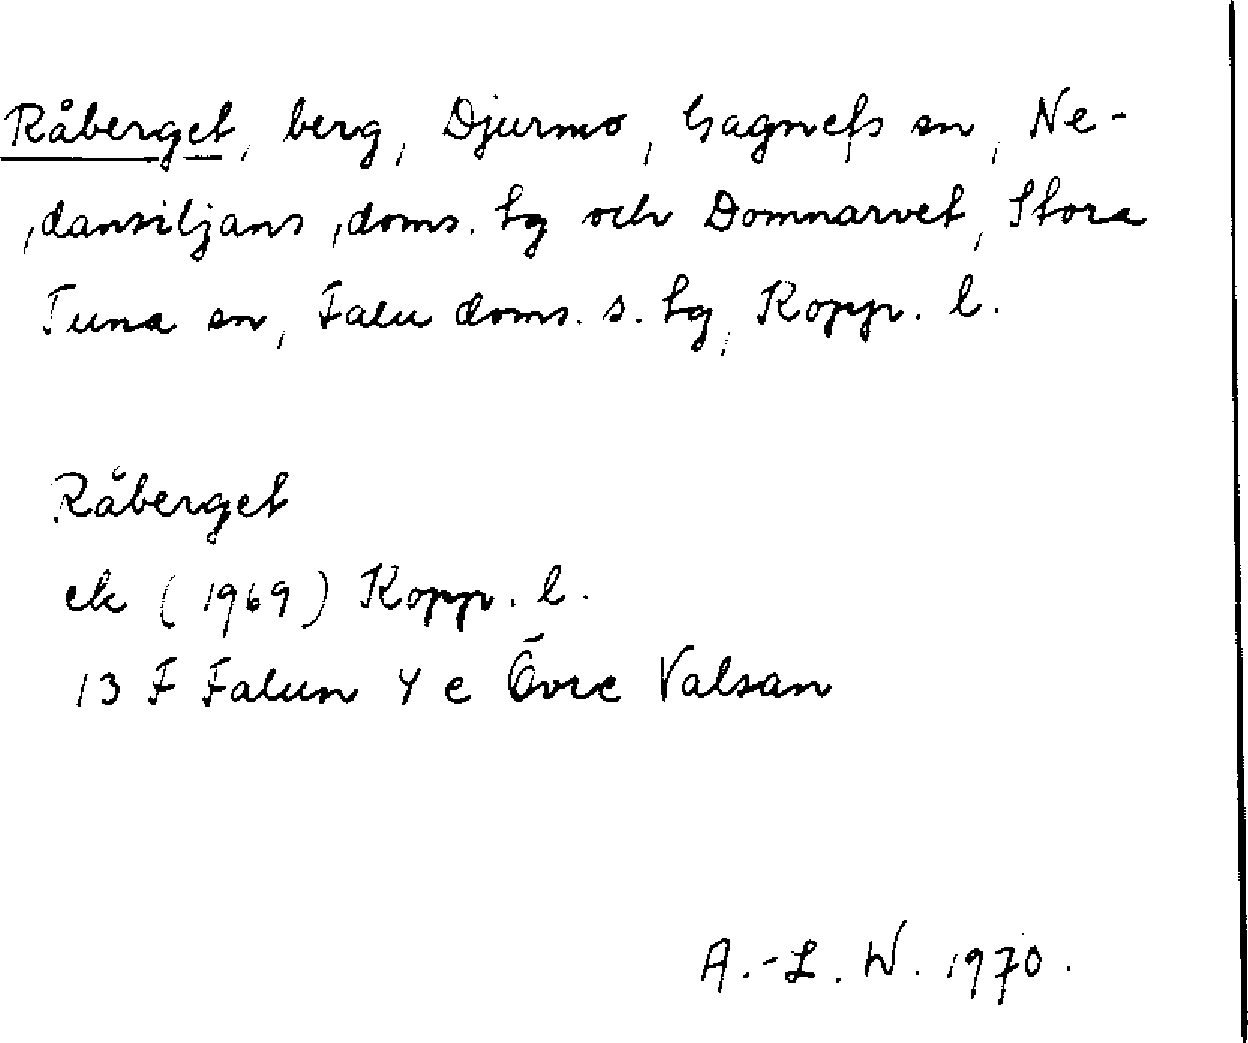 Råberget, berg, Djurmo, Gagnefs sn, Ne-
dansiljans doms. tg och Domnarvet, Stora
Tuna sn, Falu doms. s. tg, Kopp. l.
Råberget
ek (1969) Kopp. l.
13 F Falun 4 e Övre Valsan
A.-L. W. 1970.